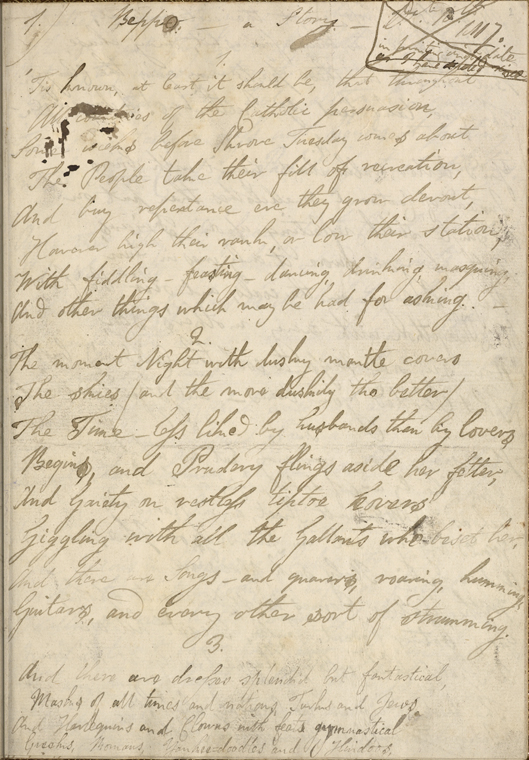 1. Beppo — a Story —
1817.
1.
'Tis known, at least it should be, that throughout
All countries of the Catholic persuasion,
Some weeks before Shrove Tuesday comes about
The People take their fill of recreation,
And buy repentance ere they grow devout,
However high their rank, or low their station,
With fiddling — feasting — dancing, drinking, masquing
And other things which may be had for asking. —
2.
The moment Night with dusky mantle covers
The skies (and the more duskily the better)
The Time — less liked by husbands than by lovers
Begins, and Prudery flings aside her fetter,
And Gaiety on restless tiptoe hovers
Giggling with all the Gallants who beset her,
And there are Songs — and quavers, roaring, humming
Guitars, and every other sort of strumming.
3.
And there are dresses splendid but fantastical,
Masks of all times and nations, Turks and Jews,
And Harlequins and Clowns with feats gymnastical
Greeks, Romans, Yankeedoodles and Hindoos,